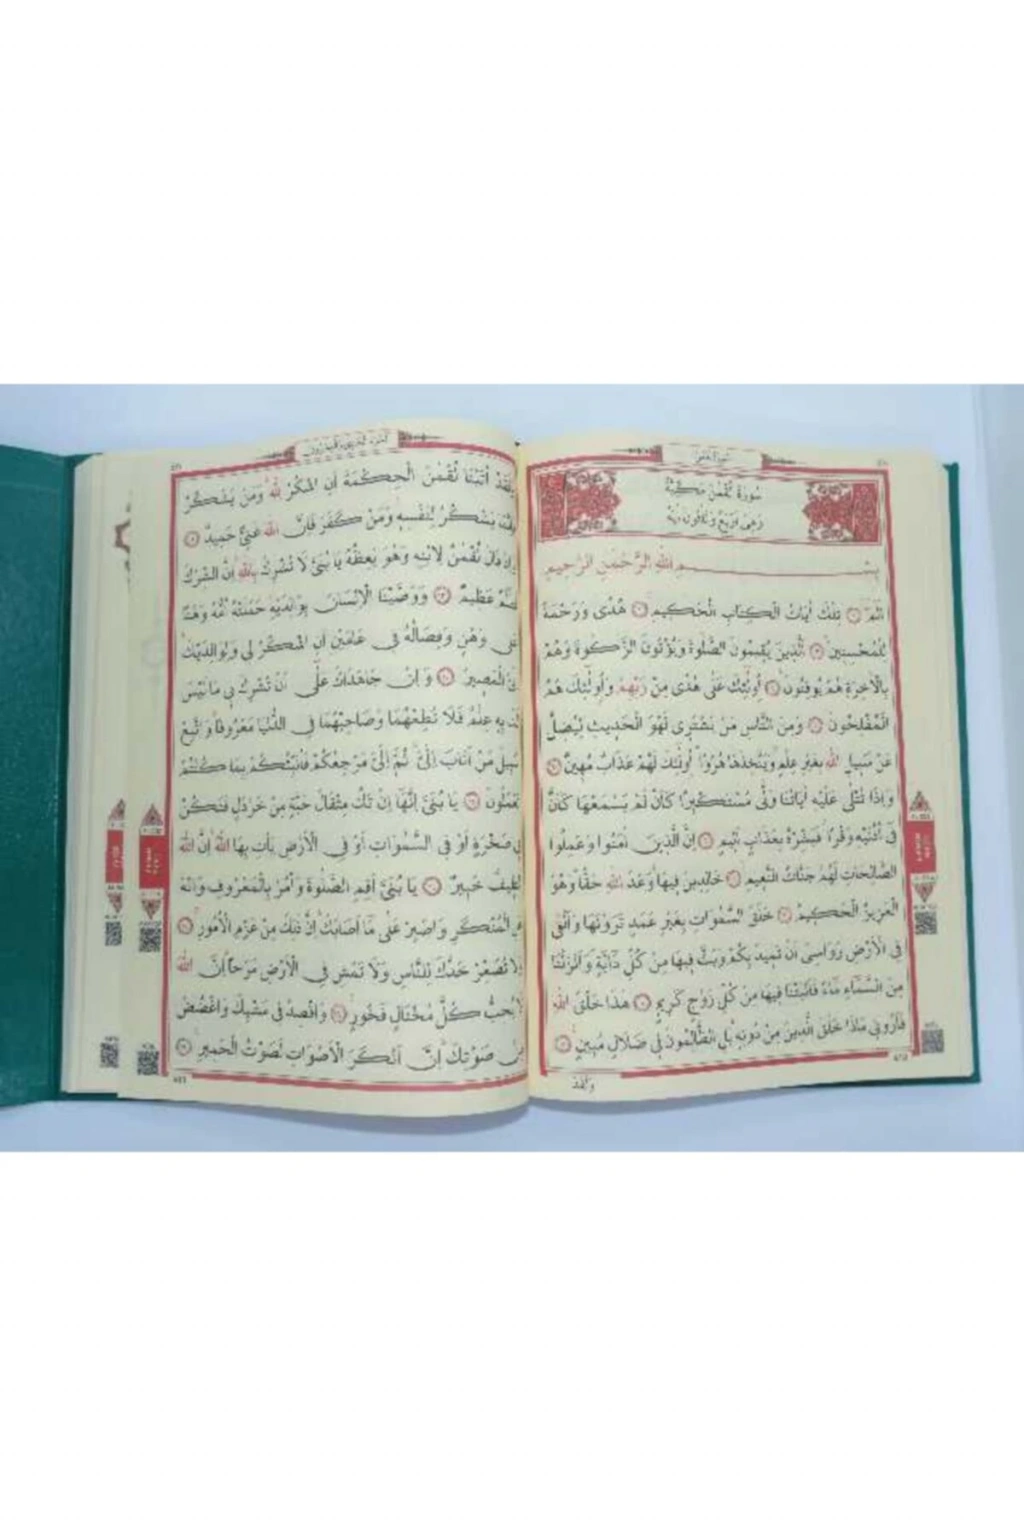 سُورَةُ لُقْمٰنَ مَكِّيَّةٌ
وَهِىَ اَرْبَعٌ وَثَلَاثُونَ اٰيَةً
بِسْمِ اللهِ الرَّحْمٰنِ الرَّحِيمِ
الٓمٓ ﴿١﴾ تِلْكَ اٰيَاتُ الْكِتَابِ الْحَكِيمِ ﴿٢﴾ هُدًى وَرَحْمَةً
لِلْمُحْسِنِينَ ﴿٣﴾ اَلَّذِينَ يُقِيمُونَ الصَّلٰوةَ وَيُؤْتُونَ الزَّكٰوةَ وَهُمْ
بِالْاٰخِرَةِ هُمْ يُوقِنُونَ ﴿٤﴾ اُولٰٓئِكَ عَلٰى هُدًى مِنْ رَبِّهِمْ وَاُولٰٓئِكَ هُمُ
الْمُفْلِحُونَ ﴿٥﴾ وَمِنَ النَّاسِ مَنْ يَشْتَرِى لَهْوَ الْحَدِيثِ لِيُضِلَّ
عَنْ سَبِيلِ اللهِ بِغَيْرِ عِلْمٍ وَيَتَّخِذَهَا هُزُوًا اُولٰٓئِكَ لَهُمْ عَذَابٌ مُهِينٌ ﴿٦﴾
وَاِذَا تُتْلٰى عَلَيْهِ اٰيَاتُنَا وَلّٰى مُسْتَكْبِرًا كَاَنْ لَمْ يَسْمَعْهَا كَاَنَّ
فٓى اُذُنَيْهِ وَقْرًا فَبَشِّرْهُ بِعَذَابٍ اَلِيمٍ ﴿٧﴾ اِنَّ الَّذِينَ اٰمَنُوا وَعَمِلُوا
الصَّالِحَاتِ لَهُمْ جَنَّاتُ النَّعِيمِ ﴿٨﴾ خَالِدِينَ فِيهَا وَعْدَ اللهِ حَقًّا وَهُوَ
الْعَزِيزُ الْحَكِيمُ ﴿٩﴾ خَلَقَ السَّمٰوَاتِ بِغَيْرِ عَمَدٍ تَرَوْنَهَا وَاَلْقٰى
فِى الْاَرْضِ رَوَاسِىَ اَنْ تَمِيدَ بِكُمْ وَبَثَّ فِيهَا مِنْ كُلِّ دَٓابَّةٍ وَاَنْزَلْنَا
مِنَ السَّمَٓاءِ مَٓاءً فَاَنْبَتْنَا فِيهَا مِنْ كُلِّ زَوْجٍ كَرِيمٍ ﴿١٠﴾ هٰذَا خَلْقُ اللهِ
فَاَرُونِى مَاذَا خَلَقَ الَّذِينَ مِنْ دُونِهِ بَلِ الظَّالِمُونَ فِى ضَلَالٍ مُبِينٍ ﴿١١﴾
وَلَقَدْ
وَلَقَدْ اٰتَيْنَا لُقْمٰنَ الْحِكْمَةَ اَنِ اشْكُرْ لِلّٰهِ وَمَنْ يَشْكُرْ
فَاِنَّمَا يَشْكُرُ لِنَفْسِهِ وَمَنْ كَفَرَ فَاِنَّ اللهَ غَنِىٌّ حَمِيدٌ ﴿١٢﴾
وَاِذْ قَالَ لُقْمٰنُ لِابْنِهِ وَهُوَ يَعِظُهُ يَا بُنَىَّ لَا تُشْرِكْ بِاللهِ اِنَّ الشِّرْكَ
لَظُلْمٌ عَظِيمٌ ﴿١٣﴾ وَوَصَّيْنَا الْاِنْسَانَ بِوَالِدَيْهِ حَمَلَتْهُ اُمُّهُ وَهْنًا
عَلٰى وَهْنٍ وَفِصَالُهُ فِى عَامَيْنِ اَنِ اشْكُرْ لِى وَلِوَالِدَيْكَ
اِلَىَّ الْمَصِيرُ ﴿١٤﴾ وَاِنْ جَاهَدَاكَ عَلٰٓى اَنْ تُشْرِكَ بِى مَا لَيْسَ
لَكَ بِهِ عِلْمٌ فَلَا تُطِعْهُمَا وَصَاحِبْهُمَا فِى الدُّنْيَا مَعْرُوفًا وَاتَّبِعْ
سَبِيلَ مَنْ اَنَابَ اِلَىَّ ثُمَّ اِلَىَّ مَرْجِعُكُمْ فَاُنَبِّئُكُمْ بِمَا كُنْتُمْ
تَعْمَلُونَ ﴿١٥﴾ يَا بُنَىَّ اِنَّهَٓا اِنْ تَكُ مِثْقَالَ حَبَّةٍ مِنْ خَرْدَلٍ فَتَكُنْ
فِى صَخْرَةٍ اَوْ فِى السَّمٰوَاتِ اَوْ فِى الْاَرْضِ يَاْتِ بِهَا اللهُ اِنَّ اللهَ
لَطِيفٌ خَبِيرٌ ﴿١٦﴾ يَا بُنَىَّ اَقِمِ الصَّلٰوةَ وَاْمُرْ بِالْمَعْرُوفِ وَانْهَ
عَنِ الْمُنْكَرِ وَاصْبِرْ عَلٰى مَٓا اَصَابَكَ اِنَّ ذٰلِكَ مِنْ عَزْمِ الْاُمُورِ ﴿١٧﴾
وَلَا تُصَعِّرْ خَدَّكَ لِلنَّاسِ وَلَا تَمْشِ فِى الْاَرْضِ مَرَحًا اِنَّ اللهَ
لَا يُحِبُّ كُلَّ مُخْتَالٍ فَخُورٍ ﴿١٨﴾ وَاقْصِدْ فِى مَشْيِكَ وَاغْضُضْ
مِنْ صَوْتِكَ اِنَّ اَنْكَرَ الْاَصْوَاتِ لَصَوْتُ الْحَمِيرِ ﴿١٩﴾